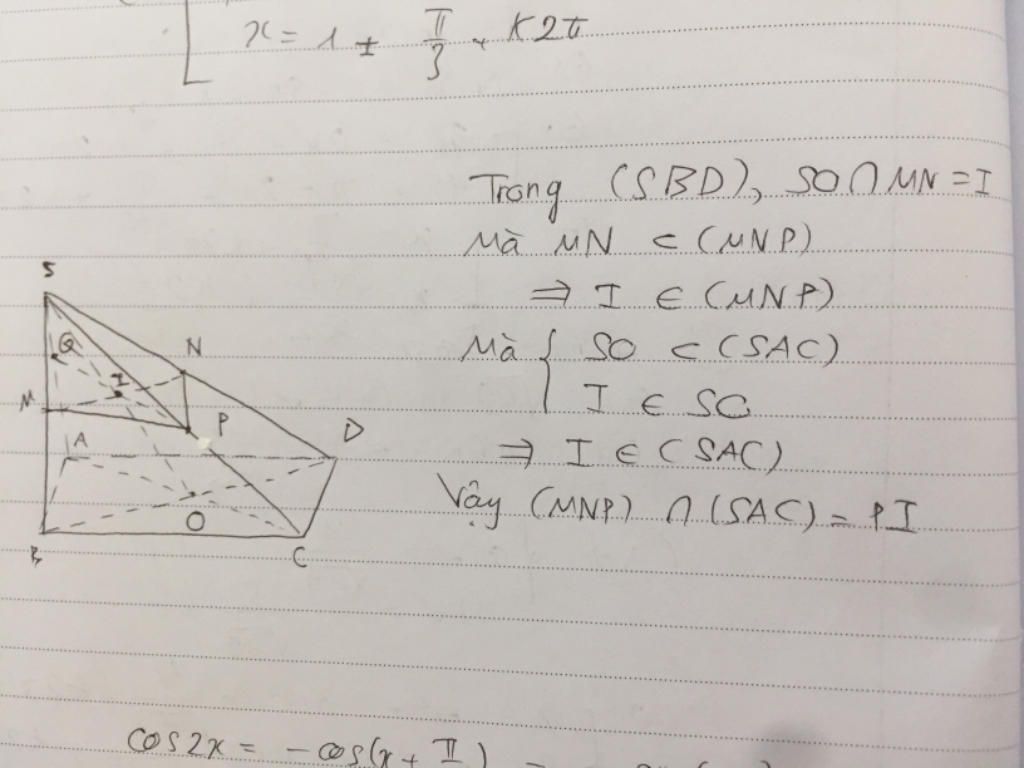 x = 1 ± π/3 + K2π
Trong (SBD), SO ∩ MN = I
Mà MN ⊂ (MNP)
⇒ I ∈ (MNP)
Mà { SO ⊂ (SAC)
I ∈ SO
⇒ I ∈ (SAC)
Vậy (MNP) ∩ (SAC) = PI
S
Q
N
I
M
P
A
D
O
B
C
cos2x = -cos(x + π